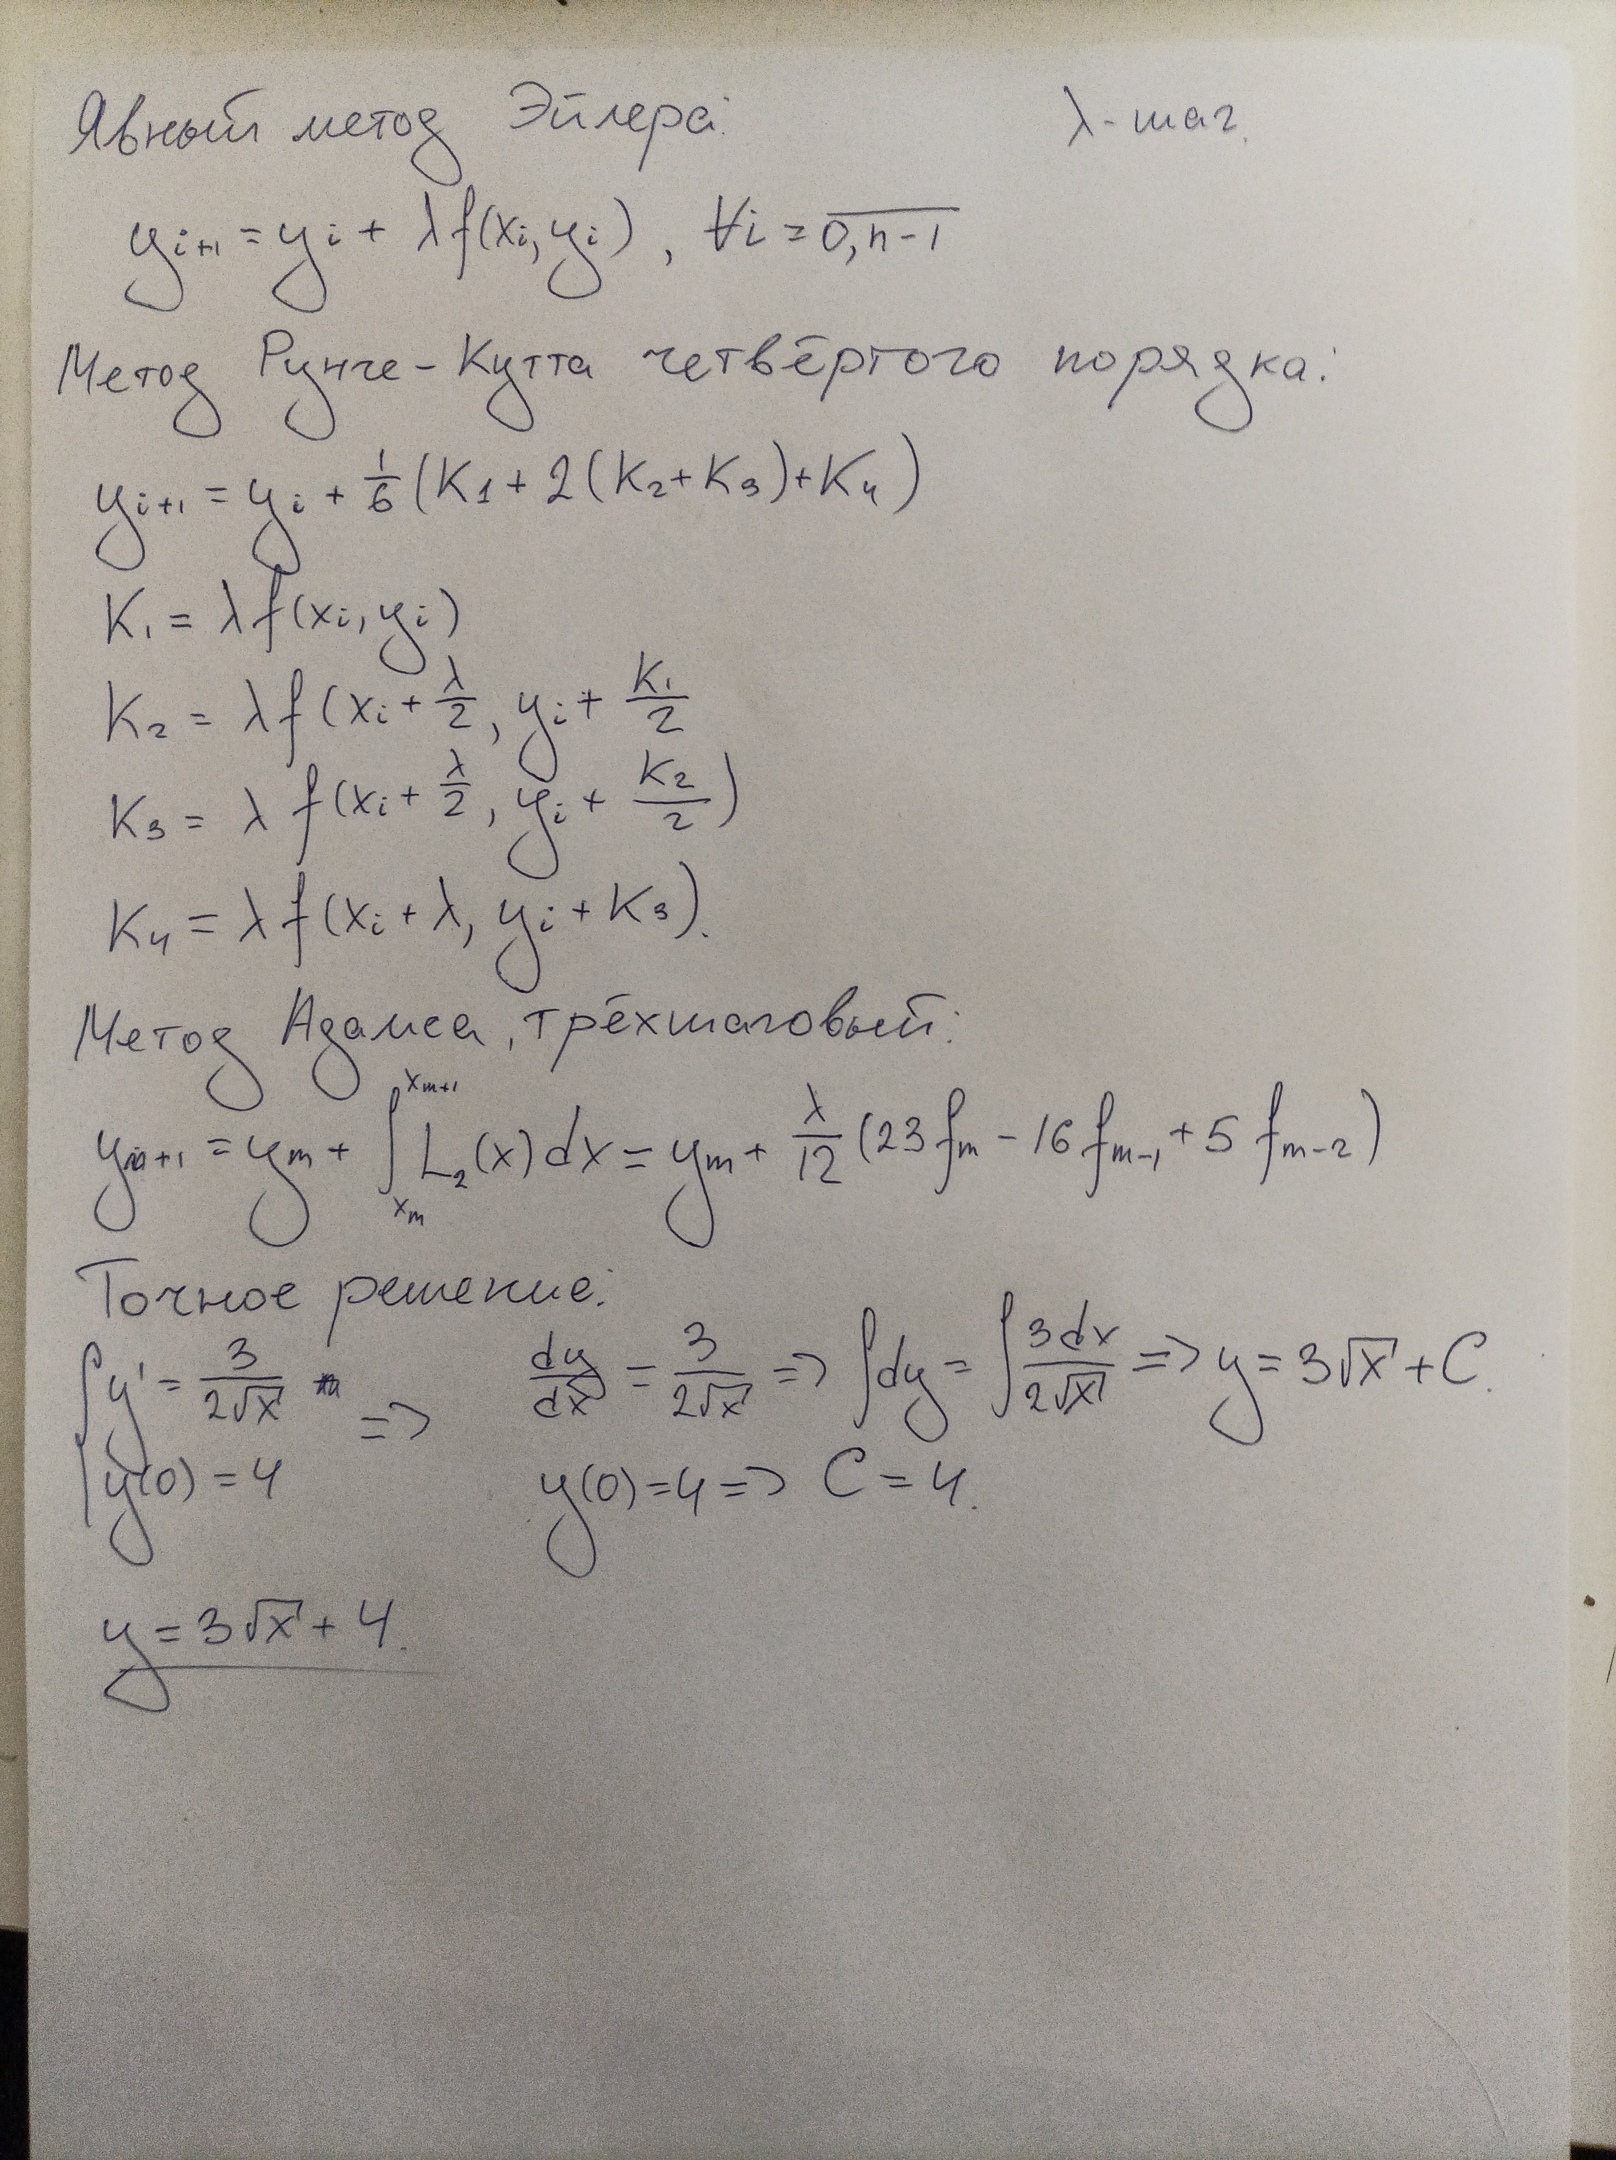 Явный метод Эйлера: λ - шаг.
y_{i+1} = y_i + λf(x_i, y_i), ∀i = \overline{0,n-1}
Метод Рунге-Кутта четвёртого порядка:
y_{i+1} = y_i + \frac{1}{6}(K_1 + 2(K_2 + K_3) + K_4)
K_1 = λf(x_i, y_i)
K_2 = λf(x_i + \frac{λ}{2}, y_i + \frac{K_1}{2}
K_3 = λf(x_i + \frac{λ}{2}, y_i + \frac{K_2}{2})
K_4 = λf(x_i + λ, y_i + K_3).
Метод Адамса, трёхшаговый:
y_{m+1} = y_m + \int_{x_m}^{x_{m+1}} L_2(x)dx = y_m + \frac{λ}{12}(23f_m - 16f_{m-1} + 5f_{m-2})
Точное решение:
{ y' = \frac{3}{2\sqrt{x}} => \frac{dy}{dx} = \frac{3}{2\sqrt{x}} => ∫dy = ∫\frac{3dx}{2\sqrt{x}} => y = 3\sqrt{x} + C.
y(0) = 4 y(0) = 4 => C = 4.
y = 3\sqrt{x} + 4.